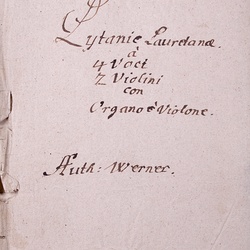 Lytanie Lauretanæ.
à
4 Voci
2 Violini
con
Organo è Violone.
Auth: Werner.